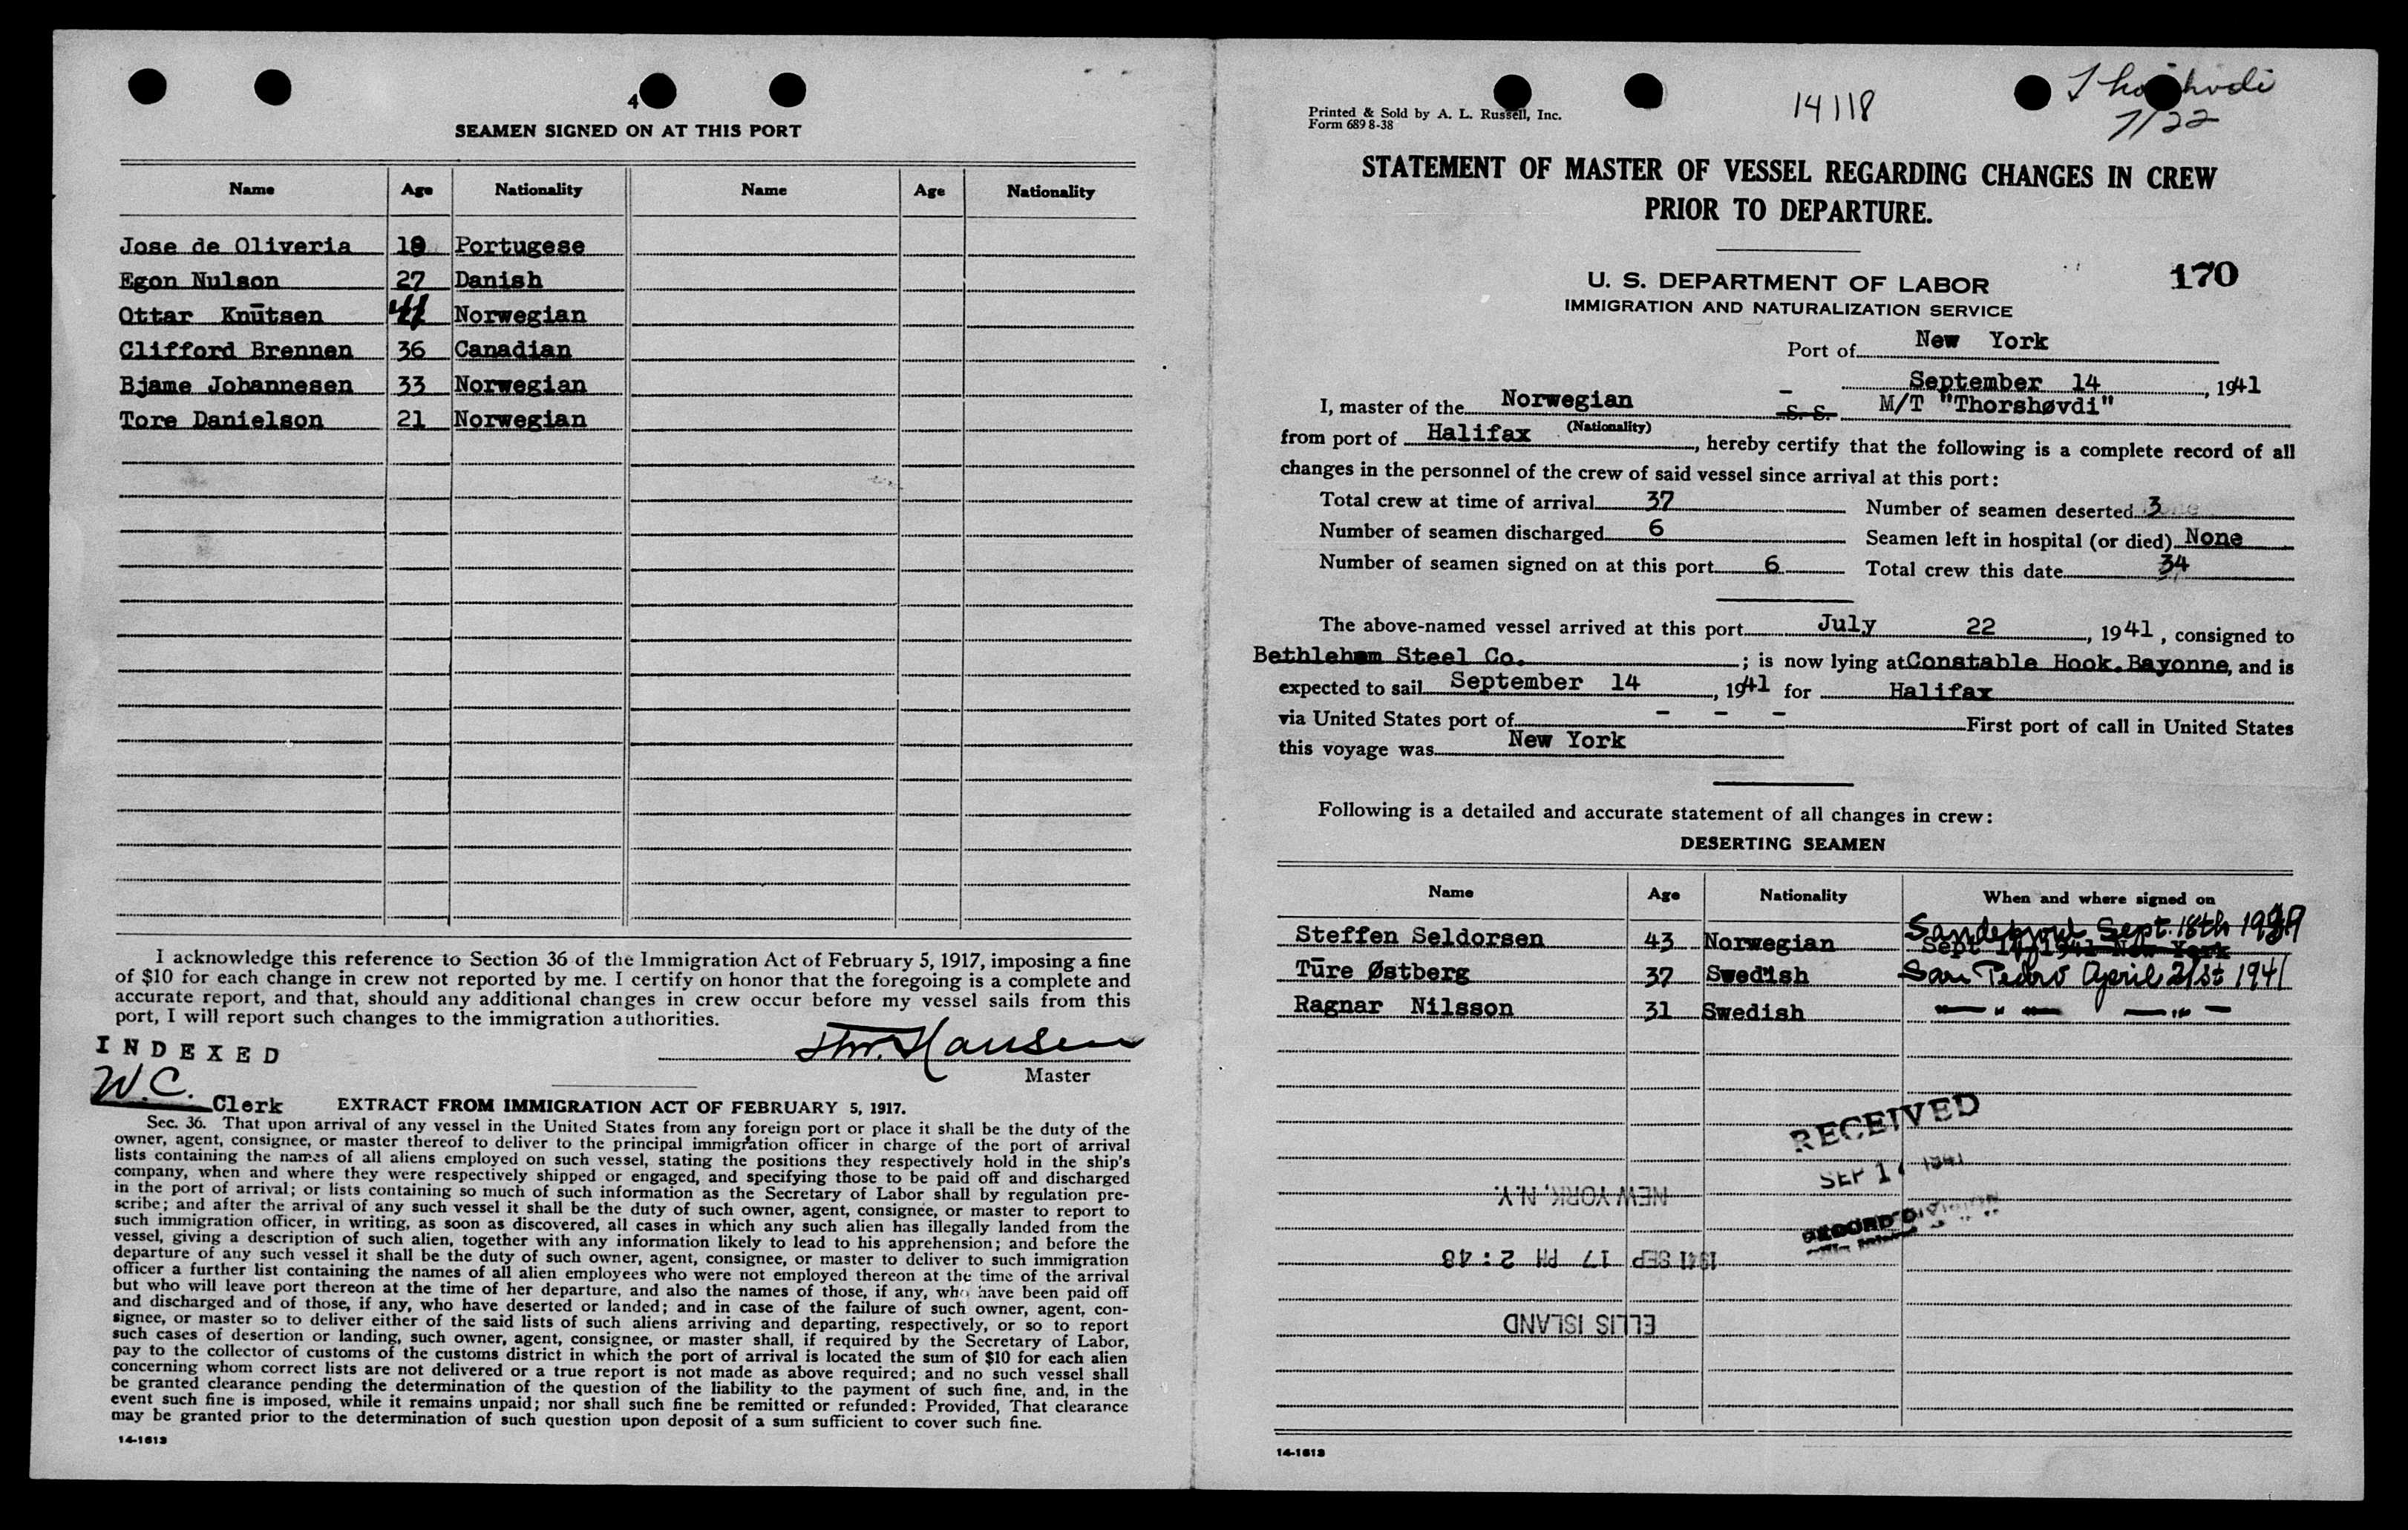 4
SEAMEN SIGNED ON AT THIS PORT
Name Age Nationality Name Age Nationality
Jose de Oliveria 19 Portugese
Egon Nulson 27 Danish
Ottar Knūtsen 41 Norwegian
Clifford Brennen 36 Canadian
Bjame Johannesen 33 Norwegian
Tore Danielson 21 Norwegian
I acknowledge this reference to Section 36 of the Immigration Act of February 5, 1917, imposing a fine
of $10 for each change in crew not reported by me. I certify on honor that the foregoing is a complete and
accurate report, and that, should any additional changes in crew occur before my vessel sails from this
port, I will report such changes to the immigration authorities.
INDEXED
Thr. Hansen
Master
W.C. Clerk
EXTRACT FROM IMMIGRATION ACT OF FEBRUARY 5, 1917.
Sec. 36. That upon arrival of any vessel in the United States from any foreign port or place it shall be the duty of the
owner, agent, consignee, or master thereof to deliver to the principal immigration officer in charge of the port of arrival
lists containing the names of all aliens employed on such vessel, stating the positions they respectively hold in the ship's
company, when and where they were respectively shipped or engaged, and specifying those to be paid off and discharged
in the port of arrival; or lists containing so much of such information as the Secretary of Labor shall by regulation pre-
scribe; and after the arrival of any such vessel it shall be the duty of such owner, agent, consignee, or master to report to
such immigration officer, in writing, as soon as discovered, all cases in which any such alien has illegally landed from the
vessel, giving a description of such alien, together with any information likely to lead to his apprehension; and before the
departure of any such vessel it shall be the duty of such owner, agent, consignee, or master to deliver to such immigration
officer a further list containing the names of all alien employees who were not employed thereon at the time of the arrival
but who will leave port thereon at the time of her departure, and also the names of those, if any, who have been paid off
and discharged and of those, if any, who have deserted or landed; and in case of the failure of such owner, agent, con-
signee, or master so to deliver either of the said lists of such aliens arriving and departing, respectively, or so to report
such cases of desertion or landing, such owner, agent, consignee, or master shall, if required by the Secretary of Labor,
pay to the collector of customs of the customs district in which the port of arrival is located the sum of $10 for each alien
concerning whom correct lists are not delivered or a true report is not made as above required; and no such vessel shall
be granted clearance pending the determination of the question of the liability to the payment of such fine, and, in the
event such fine is imposed, while it remains unpaid; nor shall such fine be remitted or refunded: Provided, That clearance
may be granted prior to the determination of such question upon deposit of a sum sufficient to cover such fine.
14-1613
Printed & Sold by A. L. Russell, Inc.
Form 689 8-38
14118
7/22
STATEMENT OF MASTER OF VESSEL REGARDING CHANGES IN CREW
PRIOR TO DEPARTURE.
170
U. S. DEPARTMENT OF LABOR
IMMIGRATION AND NATURALIZATION SERVICE
Port of New York
September 14, 1941
I, master of the Norwegian - S. S. M/T "Thorshøvdi"
(Nationality)
from port of Halifax, hereby certify that the following is a complete record of all
changes in the personnel of the crew of said vessel since arrival at this port:
Total crew at time of arrival 37 Number of seamen deserted 3
Number of seamen discharged 6 Seamen left in hospital (or died) None
Number of seamen signed on at this port 6 Total crew this date 34
The above-named vessel arrived at this port July 22, 1941, consigned to
Bethlehem Steel Co.; is now lying at Constable Hook. Bayonne, and is
expected to sail September 14, 1941 for Halifax
via United States port of - - - First port of call in United States
this voyage was New York
Following is a detailed and accurate statement of all changes in crew:
DESERTING SEAMEN
Name Age Nationality When and where signed on
Sandefjord Sept. 18th 1939
Steffen Seldorsen 43 Norwegian Sept 14/1941 New York
Tūre Østberg 37 Swedish San Pedro April 21st 1941
Ragnar Nilsson 31 Swedish — " — — " —
RECEIVED
SEP 17 1941
RECORD DIVISION
NEW YORK, N.Y.
1941 SEP 17 PM 2:48
ELLIS ISLAND
14-1613